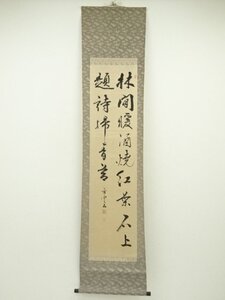 林間暖酒焼紅葉石上
題詩掃青苔